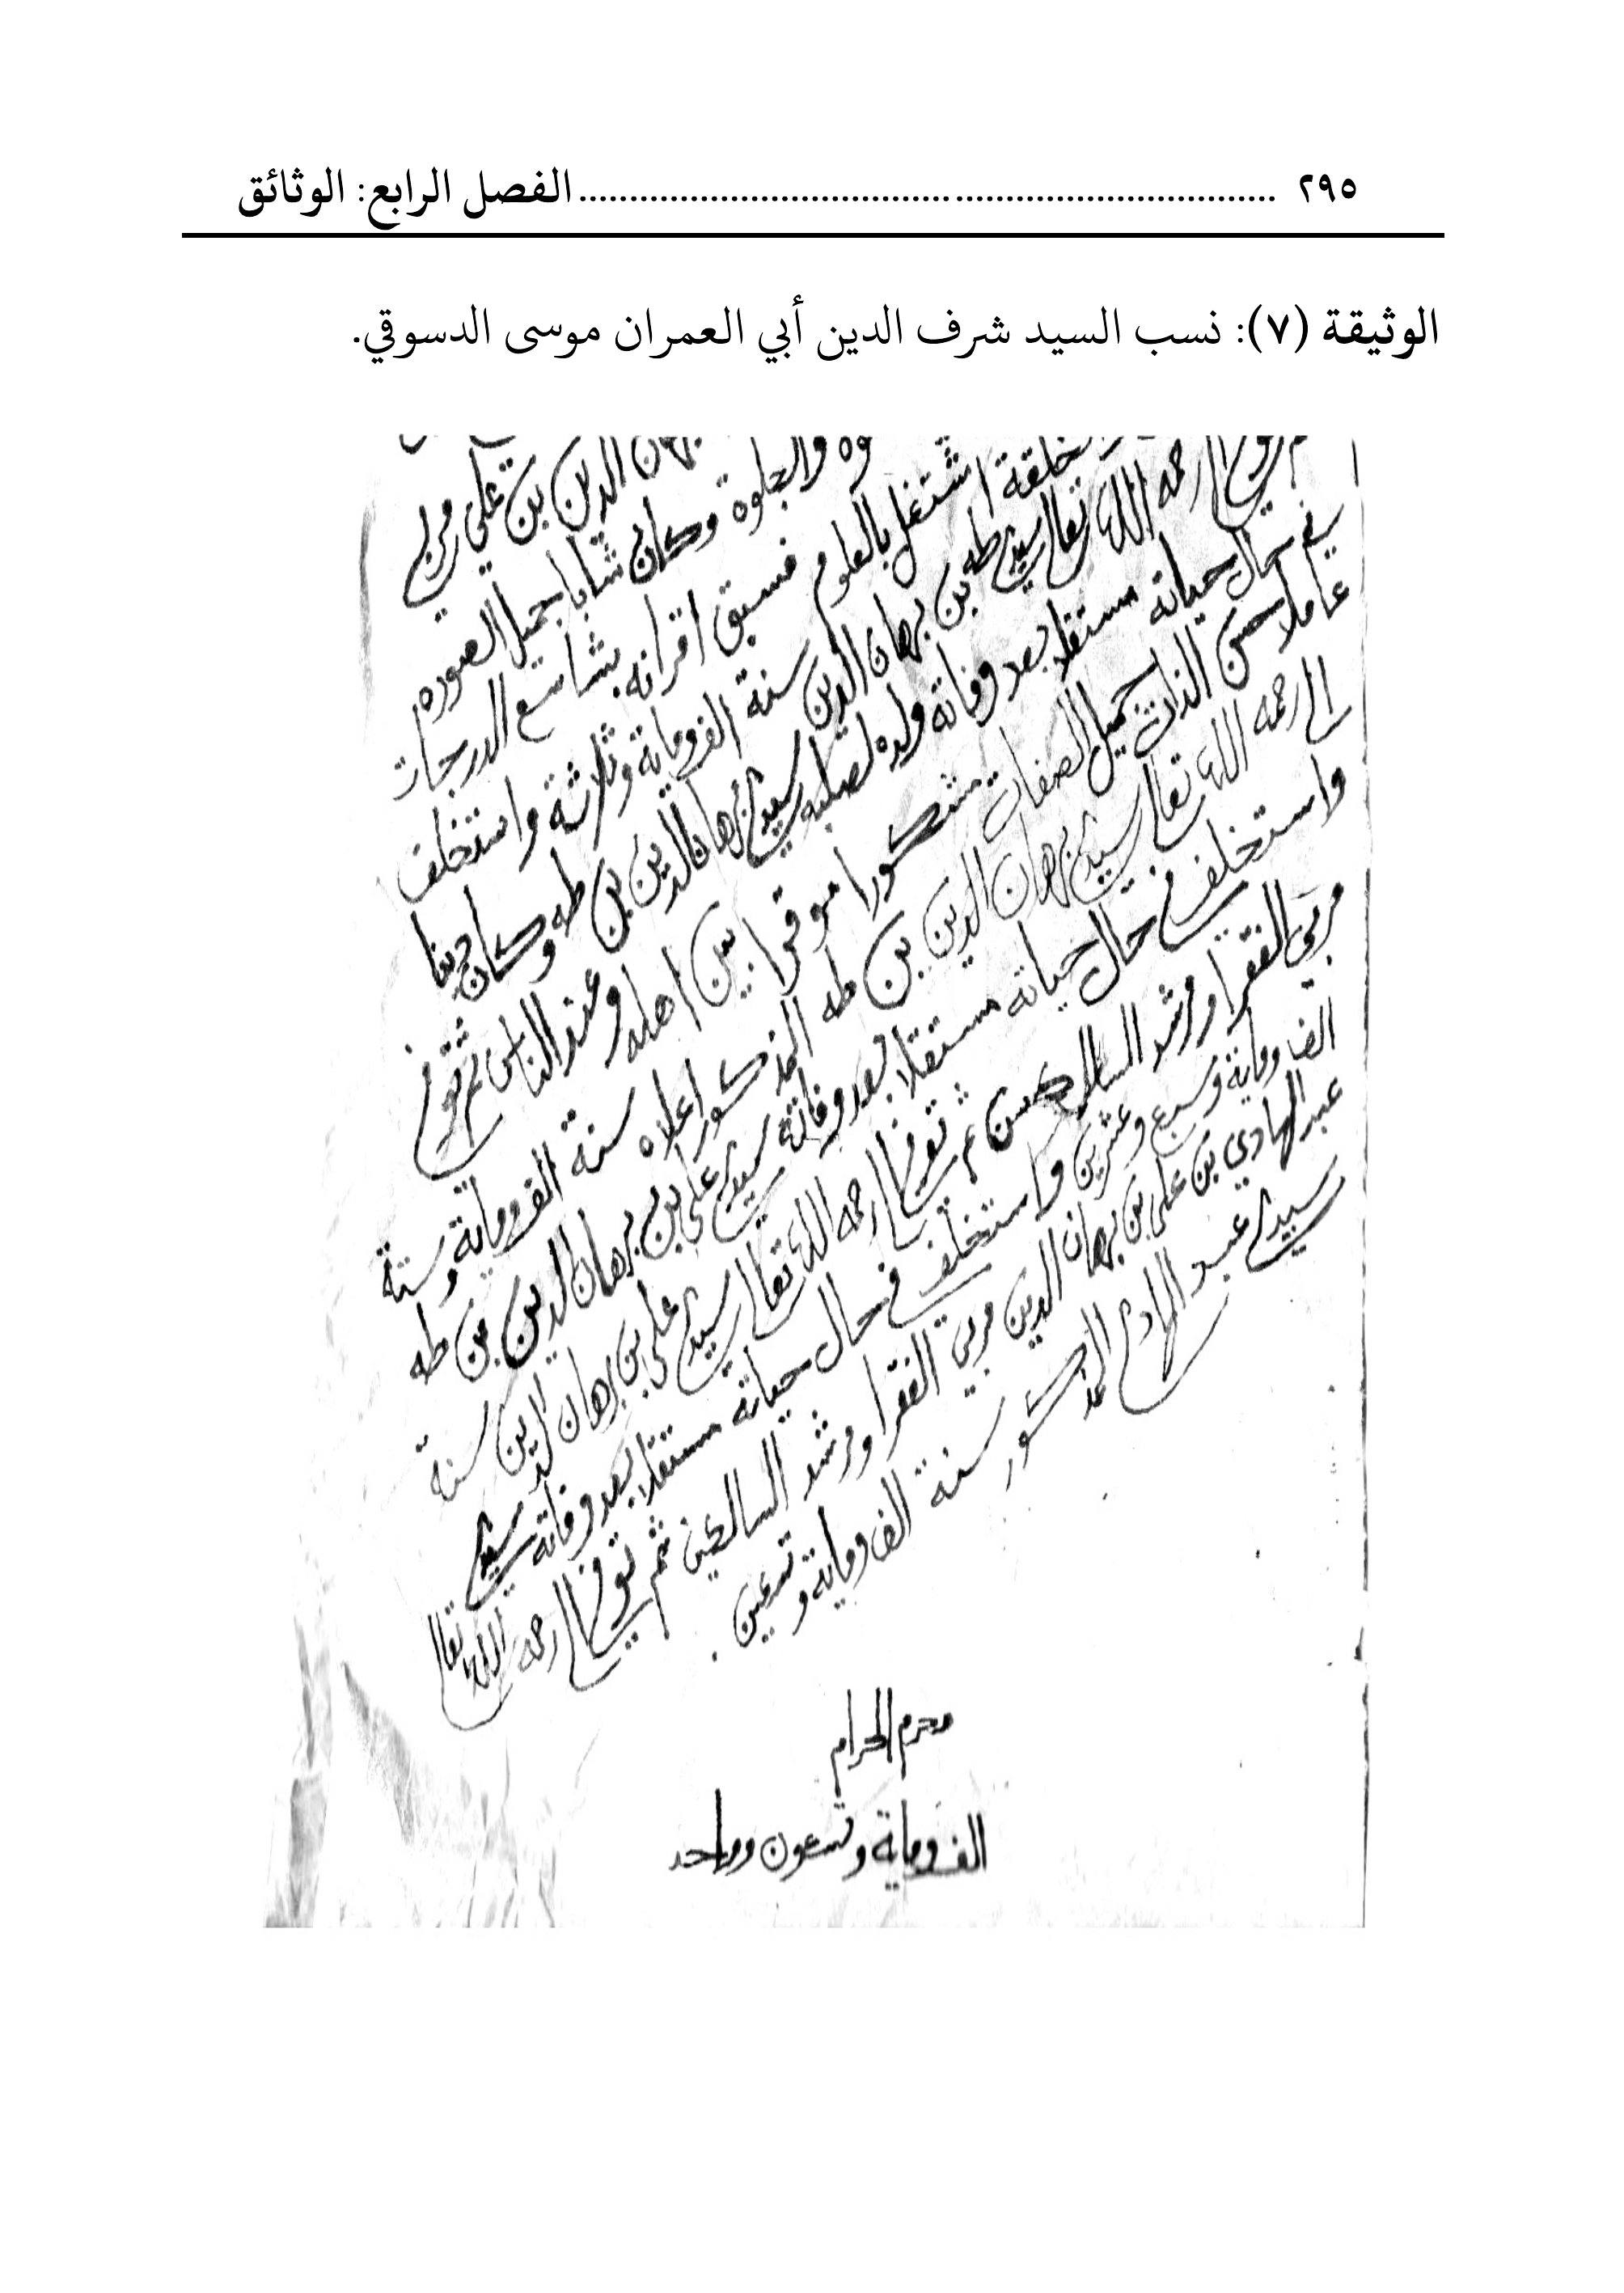 ٢٩٥ ........................................................................ الفصل الرابع: الوثائق
الوثيقة (٧): نسب السيد شرف الدين أبي العمران موسى الدسوقي.
الدين بن علي مربي
والجلوة وكان شابا جميل الصوره
اشتغل بالعلوم فسبق اقرانه بشاسع الدرجات
رحمه الله تعالى سيدي طه بن برهان الدين سنة الف وماية وثلاثة واستخلف
في حال حياته مستقلا بعد وفاته ولده لصلبه سيدي برهان الدين بن طه وكان دينا
عاملا حسن الذات جميل الصفات مشكورا موقرا بين اهله وعند الناس ثم توفي
الى رحمه الله تعالى سيدي برهان الدين بن طه المذكور اعلاه سنة الف وماية وستة
واستخلف في حال حياته مستقلا بعد وفاته سيدي علي بن برهان الدين بن طه
مربي الفقرا ومرشد السالكين ثم توفي الى رحمه الله تعالى سيدي علي بن برهان الدين سنة
الف وماية وسبع وعشرين واستخلف في حال حياته مستقلا بعد وفاته سيدي
عبد الهادي بن علي بن برهان الدين مربي الفقرا ومرشد السالكين ثم توفي الى رحمه الله تعالى
سيدي عبد الهادي المذكور سنة الف وماية وتسعين.
محرم الحرام
الف وماية وتسعون وواحد